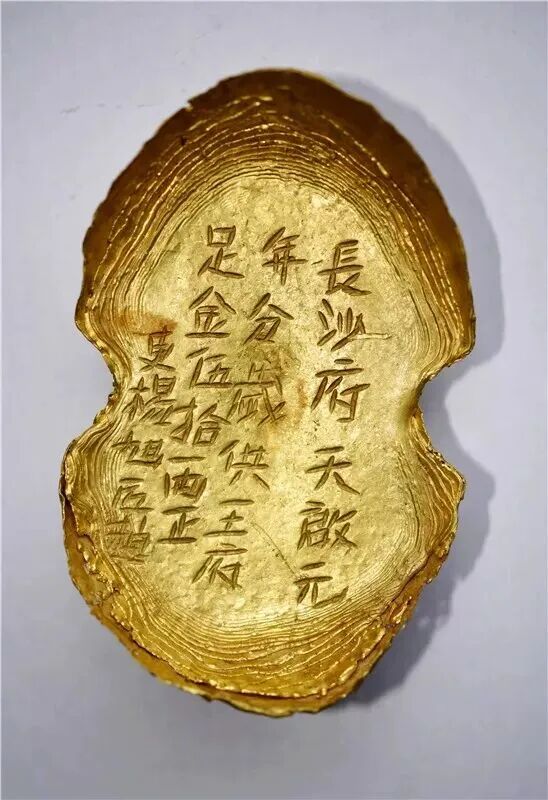 長沙府天啟元
年分歲供王府
足金伍拾両正
吏楊旭匠趙